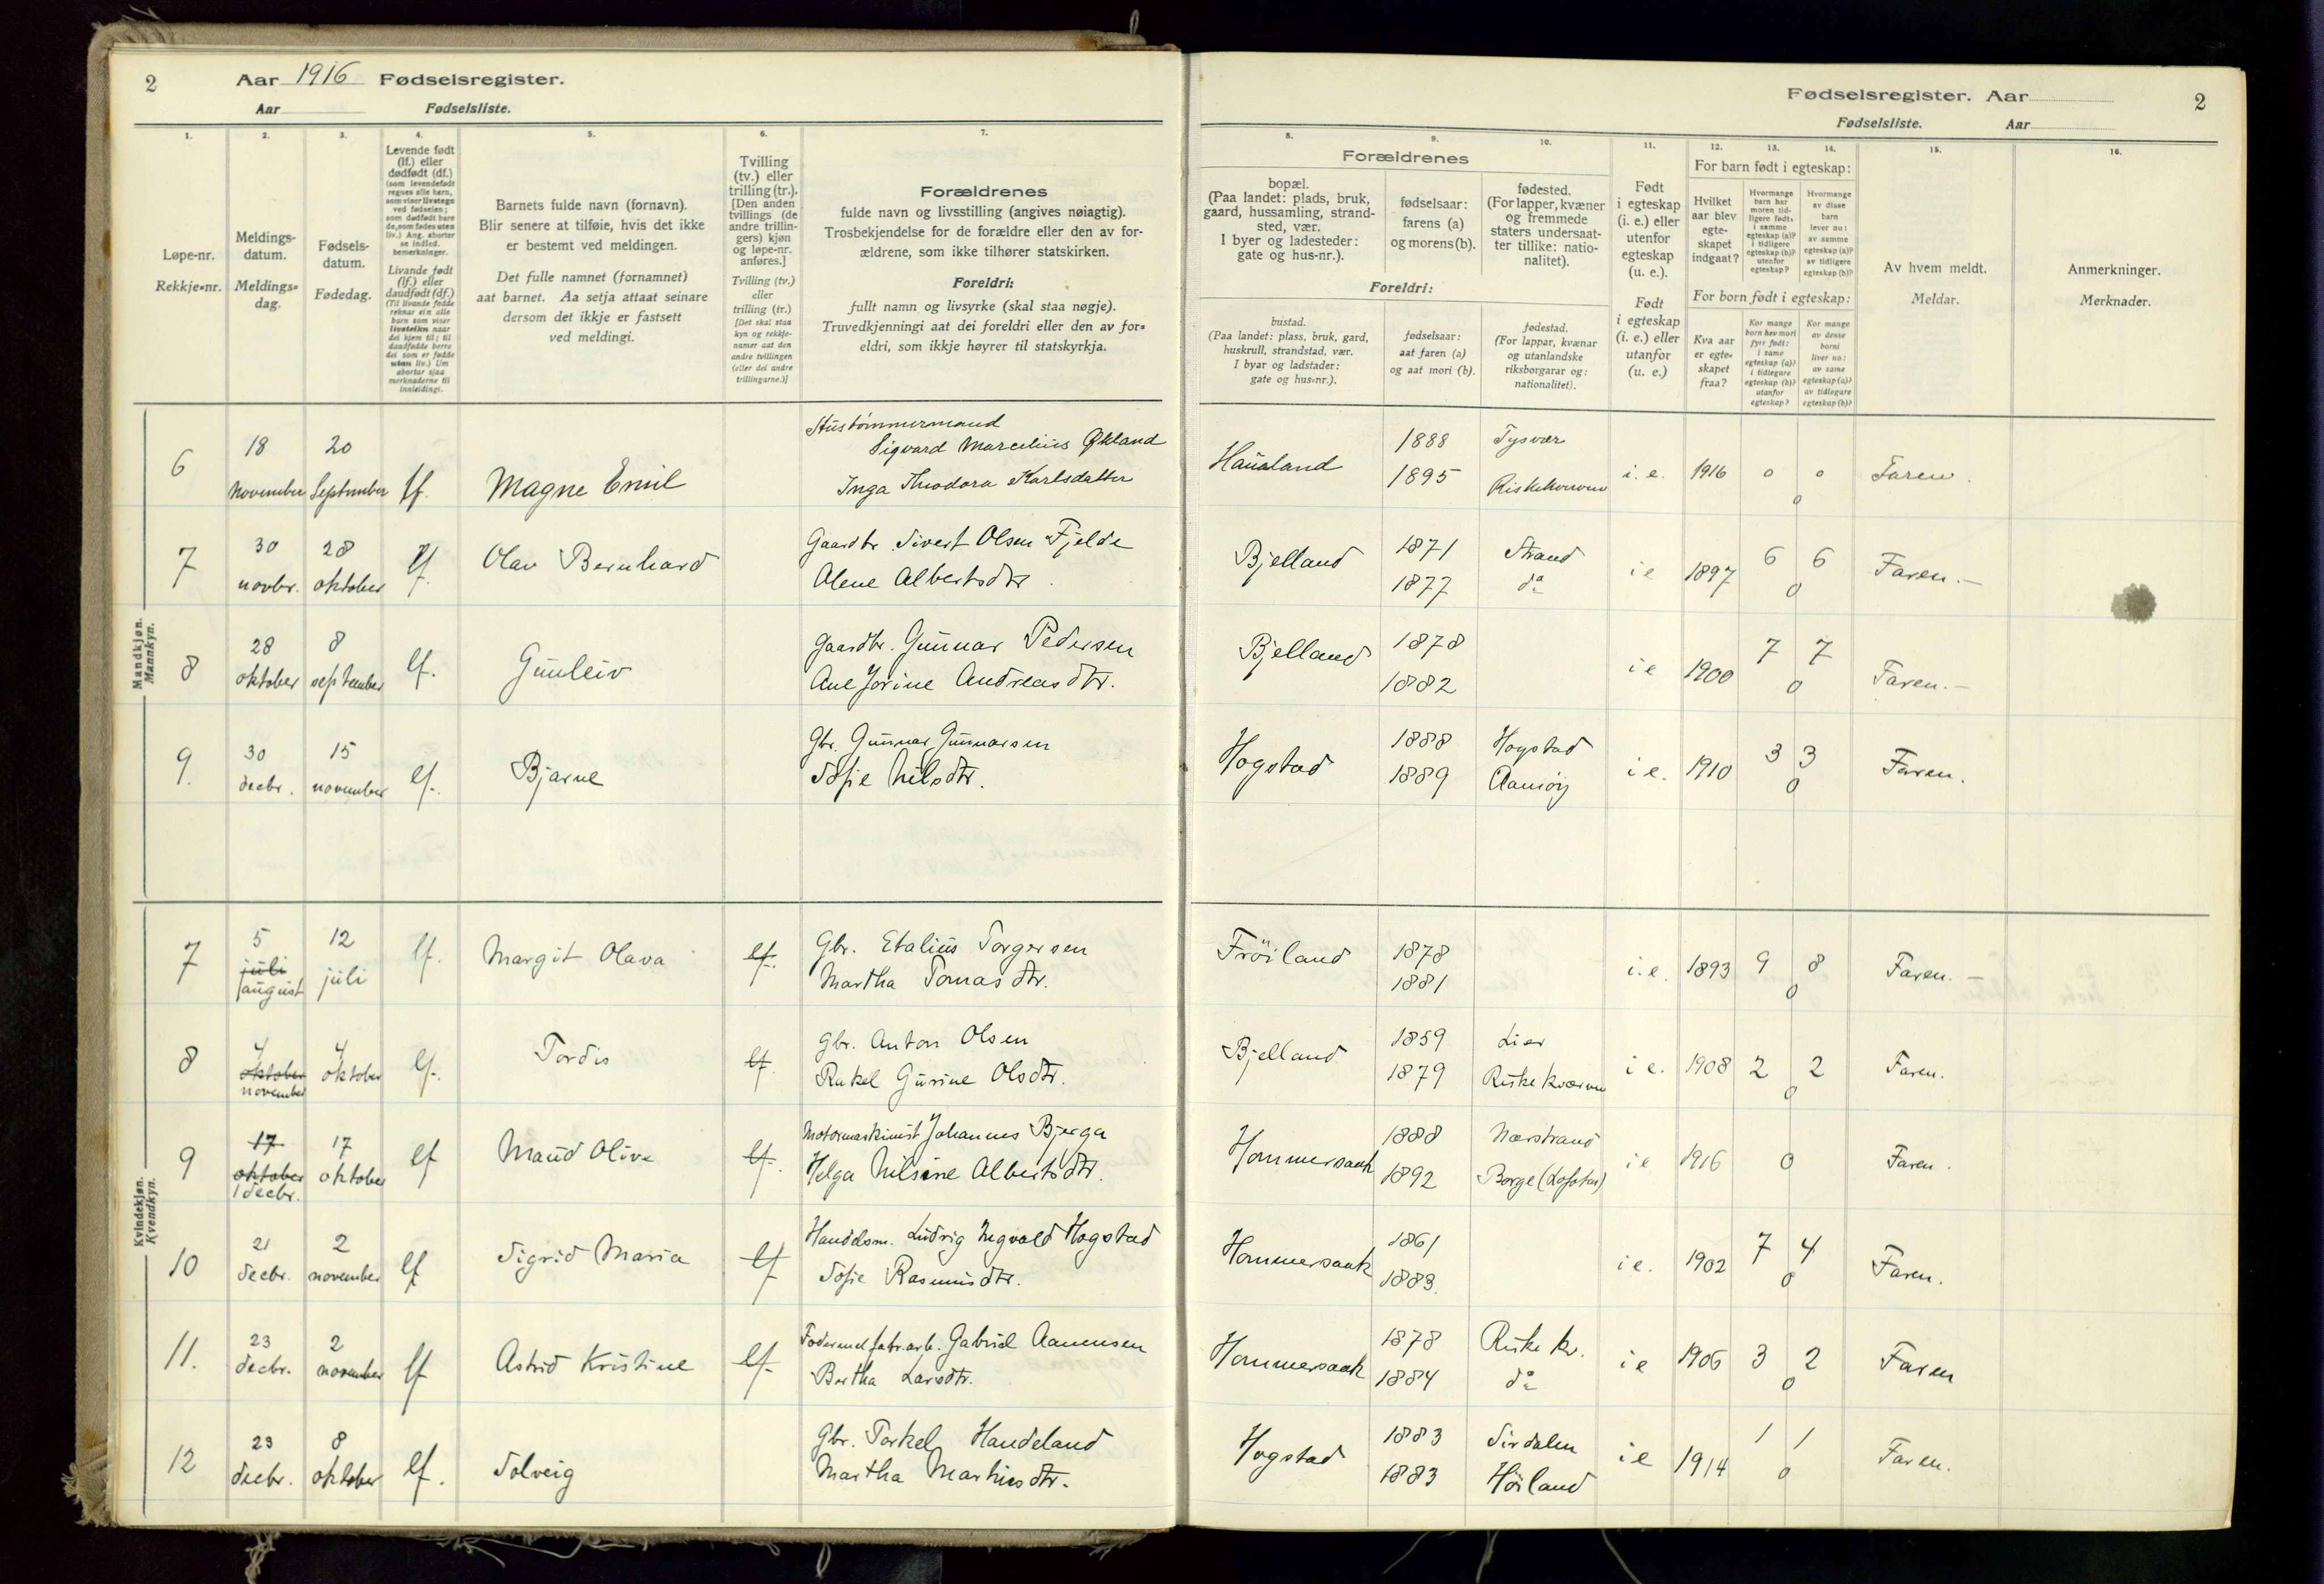 2
Aar 1916 Fødselsregister.
Aar Fødselsliste.
Fødselsregister. Aar
2
Fødselsliste. Aar
1. 2. 3. 4. 5. 6. 7.
8. 9. 10. 11. 12. 13. 14. 15. 16.
Løpe-nr.
Rekkje-nr.
Meldings-
datum.
Meldings-
dag.
Fødsels-
datum.
Fødedag.
Levende født
(lf.) eller
dødfødt (df.)
(som levendefødt
regnes alle barn,
som viser livstegn
ved fødselen;
som dødfødt bare
de, som fødes uten
liv.) Ang. aborter
se indled.
bemerkninger.
Livande født
(lf.) eller
daudfødt (df.)
(Til livande fødde
reknar ein alle
born som viser
livsteikn naar
dei kjem til; til
daudfødde berre
dei som er fødde
utan liv.) Um
abortar sjaa
merknaderne til
innleidingi.
Barnets fulde navn (fornavn).
Blir senere at tilføie, hvis det ikke
er bestemt ved meldingen.
Det fulle namnet (fornamnet)
aat barnet. Aa setja attaat seinare
dersom det ikkje er fastsett
ved meldingi.
Tvilling
(tv.) eller
trilling (tr.).
[Den anden
tvillings (de
andre trillin-
gers) kjøn
og løpe-nr.
anføres.]
Tvilling (tv.)
eller
trilling (tr.)
[Det skal staa
kyn og rekkje-
numer aat den
andre tvillingen
(eller dei andre
trillingarne.)]
Forældrenes
fulde navn og livsstilling (angives nøiagtig).
Trosbekjendelse for de forældre eller den av for-
ældrene, som ikke tilhører statskirken.
Foreldri:
fullt namn og livsyrke (skal staa nøgje).
Truvedkjenningi aat dei foreldri eller den av for-
eldri, som ikkje høyrer til statskyrkja.
Forældrenes
bopæl.
(Paa landet: plads, bruk,
gaard, hussamling, strand-
sted, vær.
I byer og ladesteder:
gate og hus-nr.).
fødselsaar:
farens (a)
og morens (b).
fødested.
(For lapper, kvæner
og fremmede
staters undersaat-
ter tillike: natio-
nalitet).
Foreldri:
bustad.
(Paa landet: plass, bruk, gard,
huskrull, strandstad, vær.
I byar og ladstader:
gate og hus-nr.).
fødselsaar:
aat faren (a)
og aat mori (b).
fødestad.
(For lappar, kvænar
og utanlandske
riksborgarar og:
nationalitet).
Født
i egteskap
(i. e.) eller
utenfor
egteskap
(u. e.).
Født
i egteskap
(i. e.) eller
utanfor
egteskap
(u. e.)
For barn født i egteskap:
Hvilket
aar blev
egte-
skapet
indgaat?
Hvormange
barn har
moren tid-
ligere født:
i samme
egteskap (a)?
i tidligere
egteskap (b)?
utenfor
egteskap?
Hvormange
av disse
barn
lever nu:
av samme
egteskap (a)?
av tidligere
egteskap (b)?
For born født i egteskap:
Kva aar
er egte-
skapet
fraa?
Kor mange
born hev mori
fyrr født:
i same
egteskap (a)?
i tidlegare
egteskap (b)?
utanfor
egteskap?
Kor mange
av desse
borni
liver no:
av same
egteskap (a)?
av tidlegare
egteskap (b)?
Av hvem meldt.
Meldar.
Anmerkninger.
Merknader.
Mandkjøn.
Mannkyn.
6 18 november 20 September lf. Magne Emil
Hustømmermand
Sigvard Marcelius Økland
Inga Theodora Karlsdatter
Haualand 1888 1895 Tysvær Riskekvern i. e. 1916 0 0 0 Faren.
7 30 novbr. 28 oktober lf. Olav Bernhard
Gaardbr. Sivert Olsen Fjelde
Alene Albertsdtr.
Bjelland 1871 1877 Strand do i e 1897 6 6 0 Faren.-
8 28 oktober 8 september lf. Gunleiv
Gaardbr. Gunnar Pedersen
Ane Jorine Andreasdtr.
Bjelland 1878 1882 i e 1900 7 7 0 Faren.-
9. 30 decbr. 15 november lf. Bjarne
Gbr. Gunnar Gunnarsen
Sofie Nilsdtr.
Hogstad 1888 1889 Hogstad Aamöy i e. 1910 3 3 0 Faren.
Kvindekjøn.
Kvendkyn.
7 5 juli august 12 juli lf. Margit Olava lf.
Gbr. Etalius Torgersen
Martha Tomasdtr.
Fröiland 1878 1881 i. e. 1893 9 8 0 Faren.-
8 4 oktober november 4 oktober lf. Tordis lf.
Gbr. Anton Olsen
Rakel Gurine Olsdtr.
Bjelland 1859 1879 Lier Riskekværn i e. 1908 2 2 0 Faren.
9 17 oktober 1 decbr. 17 oktober lf Maud Olive lf.
Motormaskinist Johannes Bjerga
Helga Nilsine Albertsdtr.
Hommersaak 1888 1892 Nærstrand Borge (Lofoten) i e 1916 0 Faren.
10 21 decbr. 2 november lf Sigrid Maria lf
Handelsm. Ludvig Ingvald Hogstad
Sofie Rasmusdtr.
Hommersaak 1861 1883. i e. 1902 7 4 0 Faren.
11. 23 decbr. 2 november lf Astrid Kristine lf.
Fodermelfabr.arb. Gabriel Aamunsen
Bertha Larsdtr.
Hommersaak 1878 1884 Riske kv. do i e 1906 3 2 0 Faren
12 23 decbr. 8 oktober lf. Solveig
Gbr. Torkel Haudeland
Martha Martinsdtr.
Hogstad 1883 1883 Sirdalen Höiland i e 1914 1 1 0 Faren.